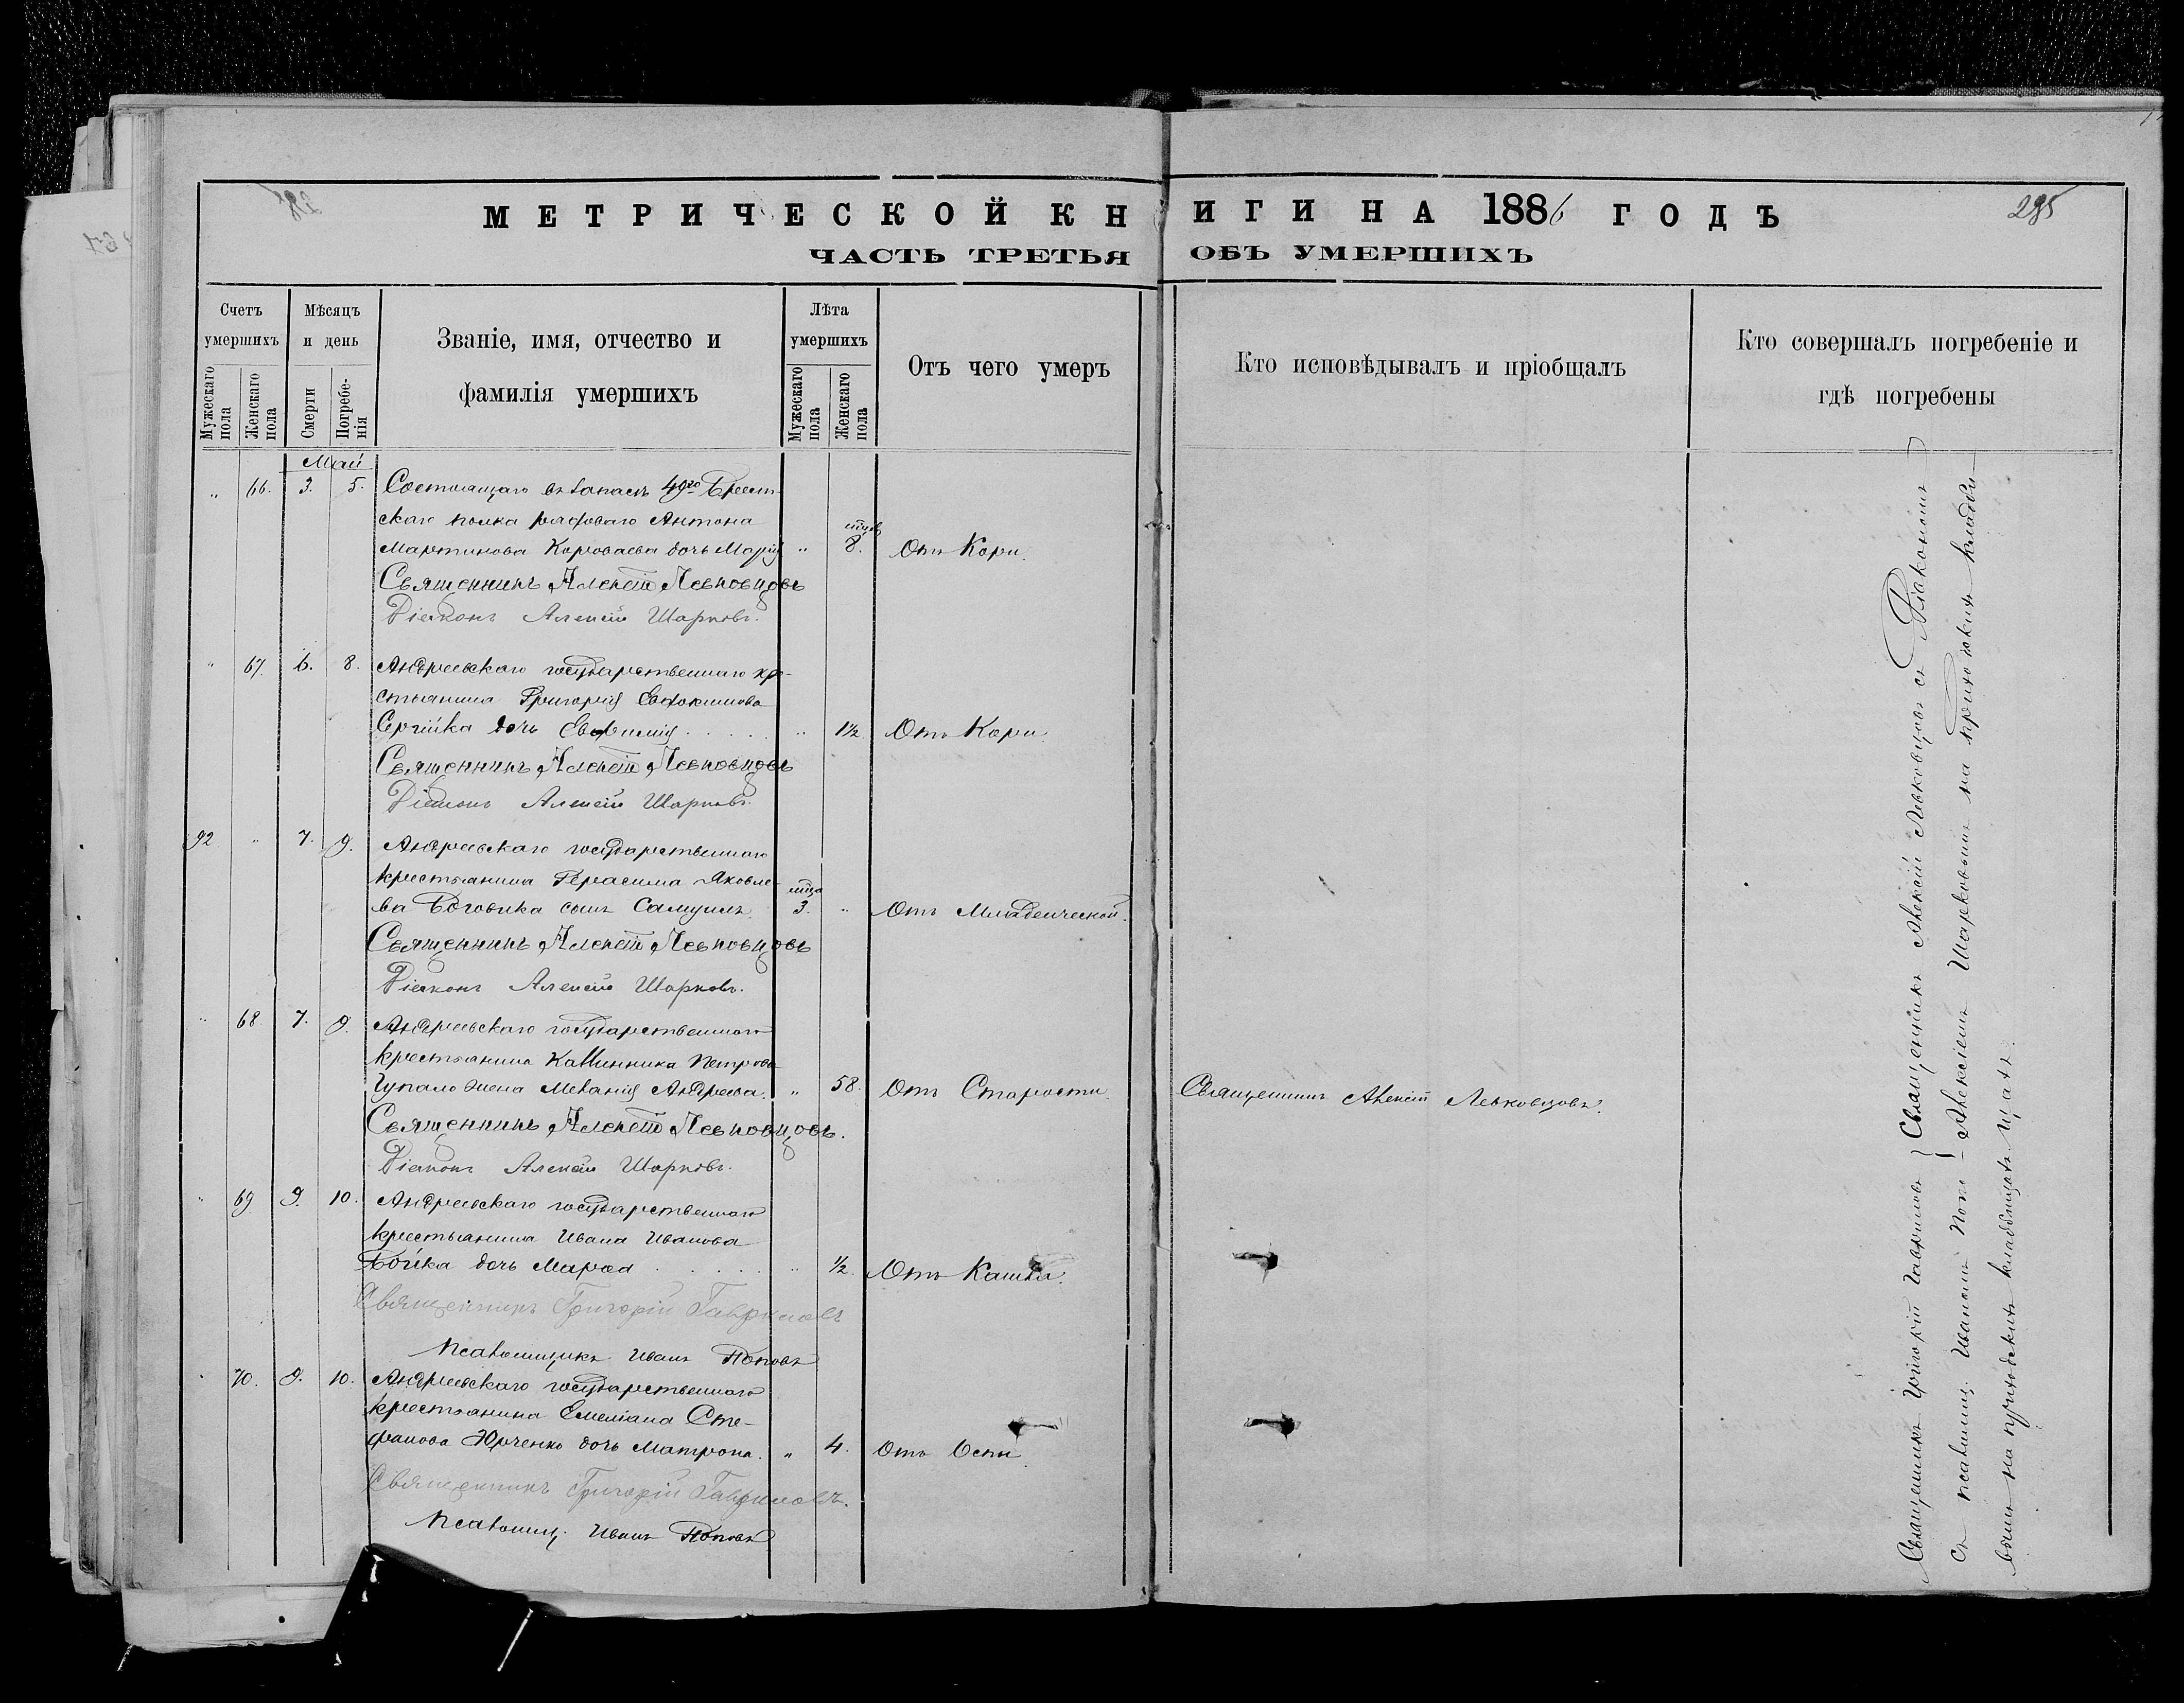 МЕТРИЧЕСКОЙ КНИГИ НА 1886 ГОДЪ
285
ЧАСТЬ ТРЕТЬЯ ОБЪ УМЕРШИХЪ
Счетъ умершихъ
Мужескаго пола
Женскаго пола
Мѣсяцъ и день
Смерти
Погребе-нія
Званіе, имя, отчество и
фамилія умершихъ
Лѣта умершихъ
Мужескаго пола
Женскаго пола
Отъ чего умеръ
Кто исповѣдывалъ и пріобщалъ
Кто совершалъ погребеніе и
гдѣ погребены
Май
„ 66. 3. 5. Состоящаго въ запасѣ 49го Брест-
скаго полка рядоваго Антона
Мартинова Короваева дочь Марія „ 8. Отъ Кори.
Священникъ Алексѣй Левковцовъ
Діаконъ Алексѣй Шарковъ.
„ 67. 6. 8. Андреевскаго государственнаго кре-
стьянина Григорія Евдокимова
Сргійка дочь Евфимія „ 1½ Отъ Кори.
Священникъ Алексѣй Левковцовъ
Діаконъ Алексѣй Шарковъ.
92 „ 7. 9. Андреевскаго государственнаго
крестьянина Герасима Яковле-
ва Боговика сынъ Самуилъ 3. „ Отъ Младенческой.
Священникъ Алексѣй Левковцовъ
Діаконъ Алексѣй Шарковъ.
„ 68 7. 9. Андреевскаго государственнаго
крестьянина Каллинника Петрова
Чупало жена Меланія Андреева. „ 58. Отъ Старости. Священникъ Алексѣй Левковцовъ.
Священникъ Алексѣй Левковцовъ.
Діаконъ Алексѣй Шарковъ.
„ 69 9. 10. Андреевскаго государственнаго
крестьянина Ивана Иванова
Бойка дочь Марфа „ ½ Отъ Кашля.
Священникъ Григорій Гавриловъ
Псаломщикъ Иванъ Поповъ
„ 70. 9. 10. Андреевскаго государственнаго
крестьянина Емеліана Сте-
фанова Юрченко дочь Матрона. „ 4. Отъ Оспы.
Священникъ Григорій Гавриловъ.
Псаломщ. Иванъ Поповъ
Священникъ Григорій Гавриловъ Священникъ Алексѣй Левковцовъ съ Діакономъ
съ псаломщ. Иваномъ Попо- Алексіемъ Шарковымъ на приходскихъ кладби-
вымъ на приходскихъ кладбищахъ щахъ.